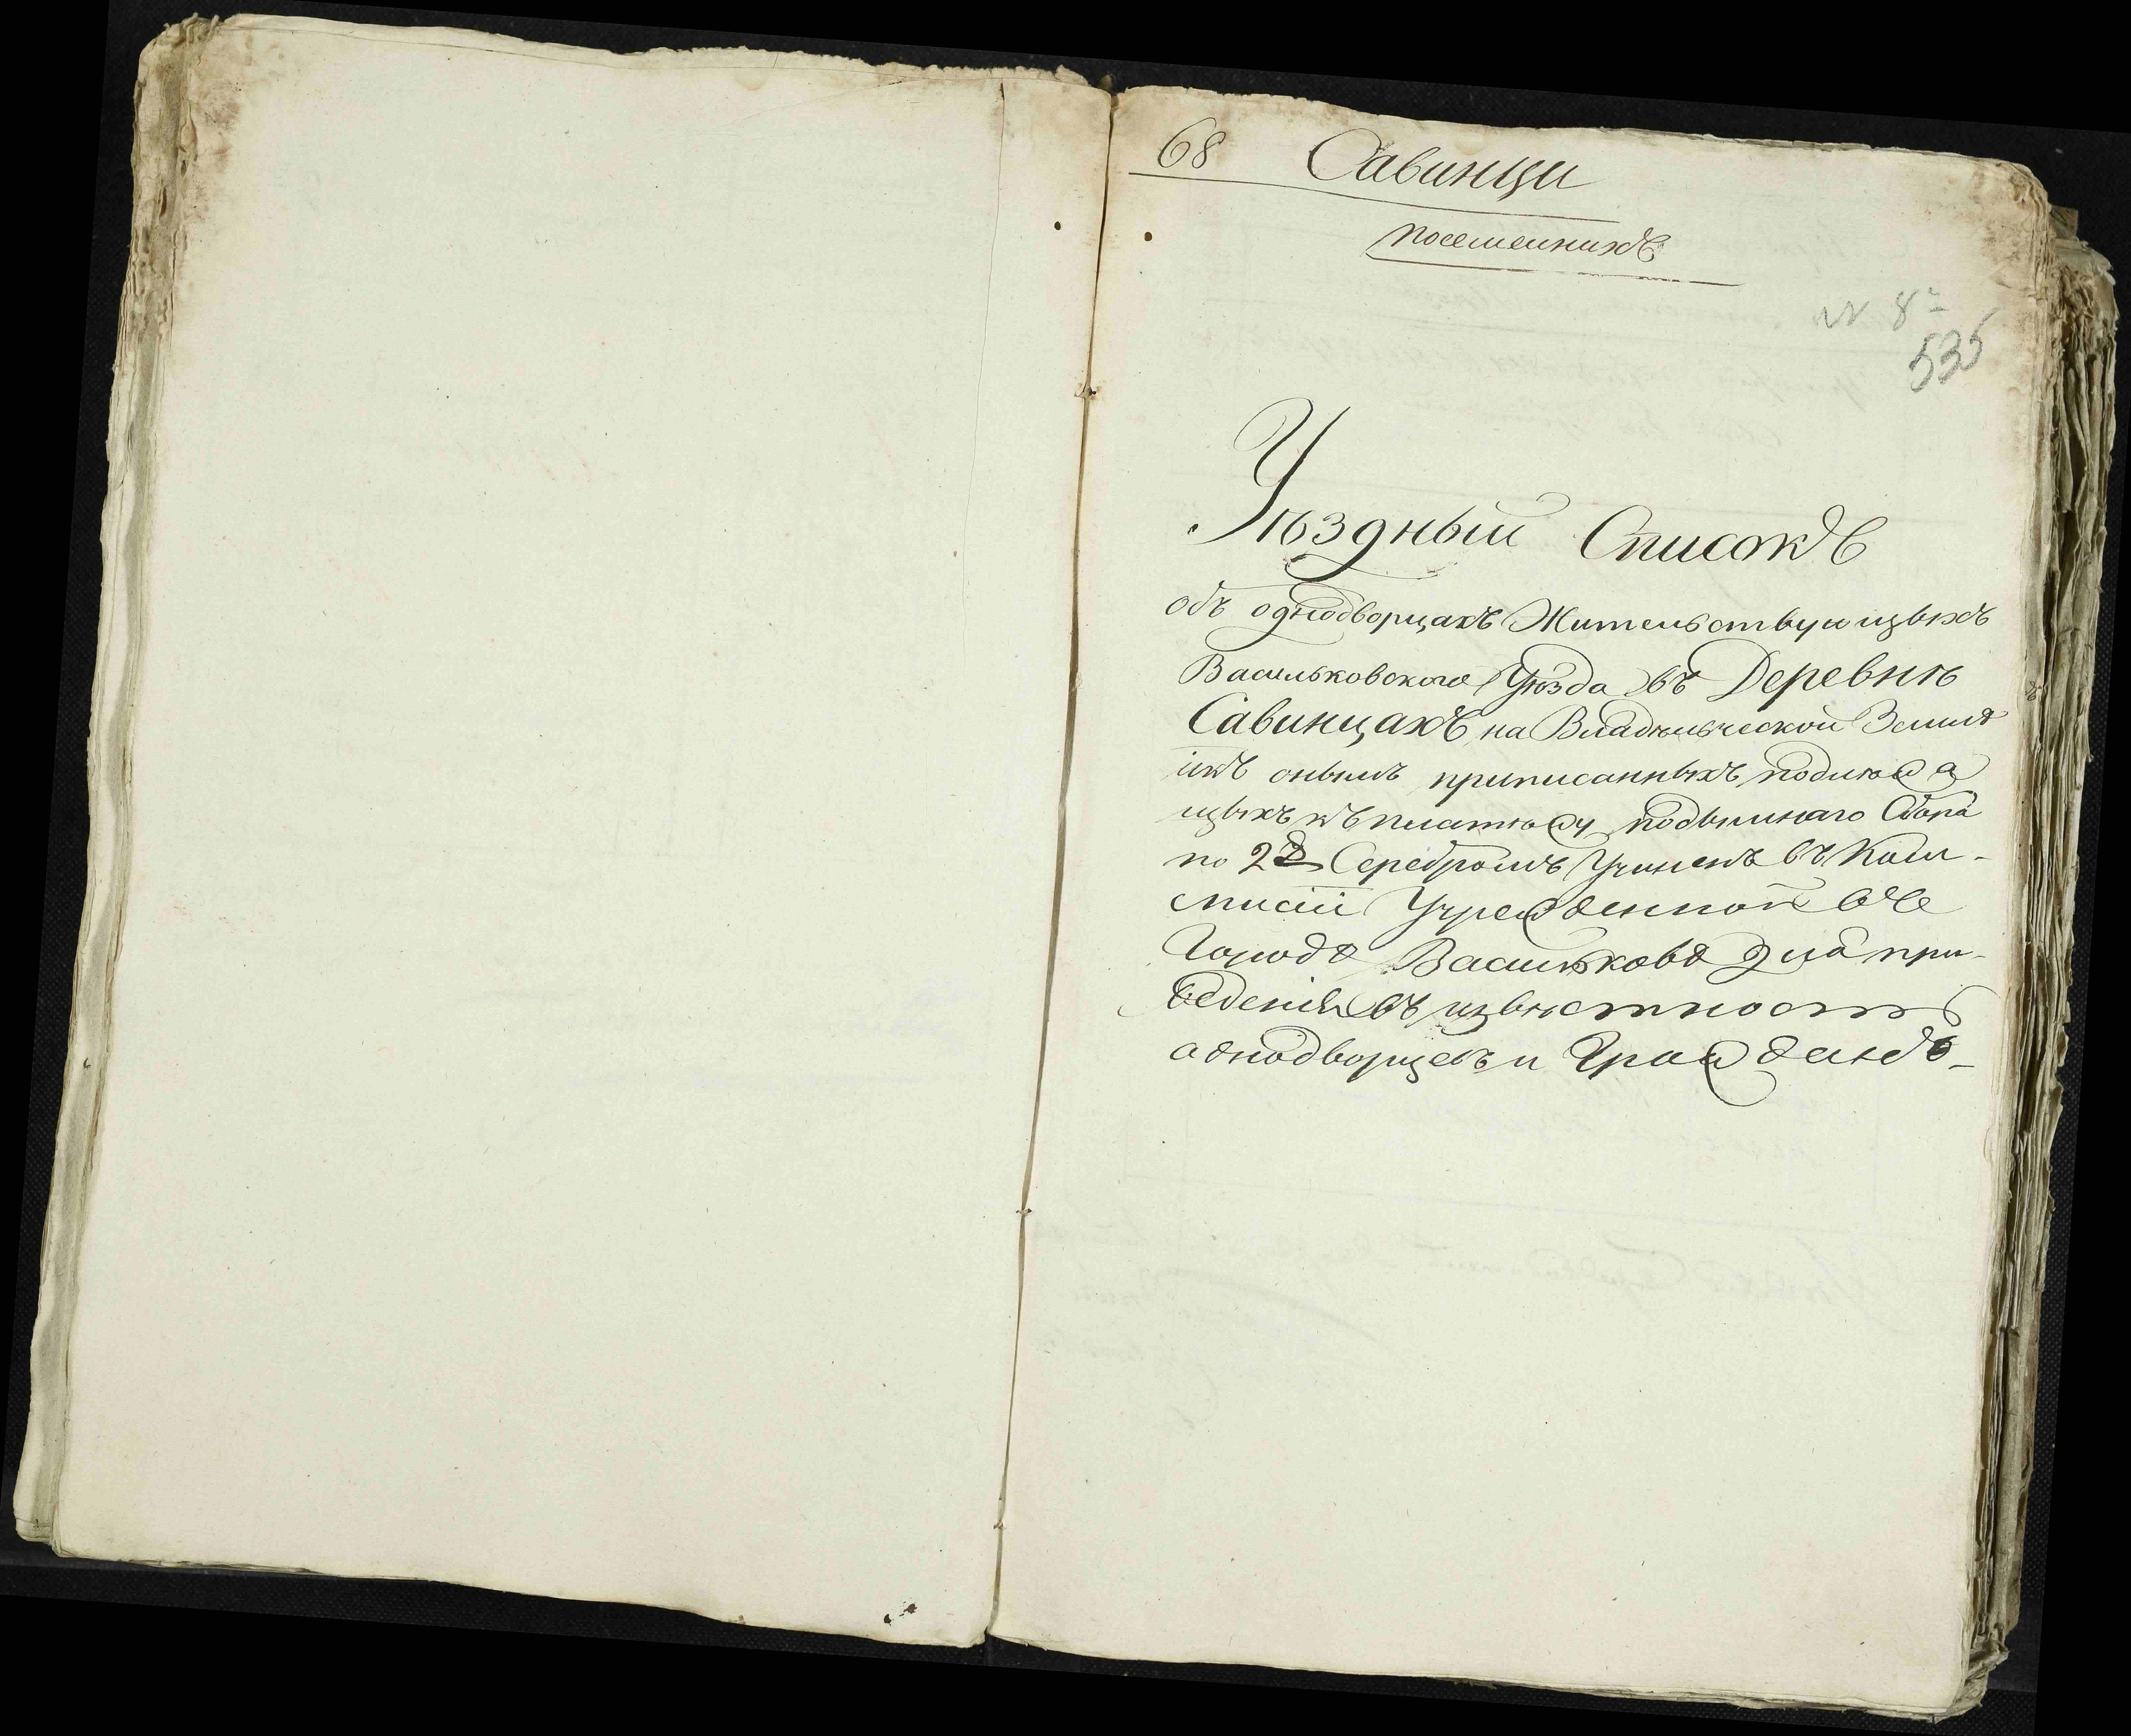 68 Савинци
посемейнихъ
N 8
535
Уѣздный Списокъ
объ однодворцахъ Жительствующыхъ
Васильковского Уѣзда въ Деревнѣ
Савинцахъ на Владѣльческой Земли
икъ онымъ приписанныхъ подлежа
щыхъ къ платежу подымнаго Сбора
по 2 Серебромъ Учиненъ въ Ком-
мисіи Учрежденной въ
Городѣ Василькове для при-
веденія въ извѣстность
однодворцевъ и Гражданъ-